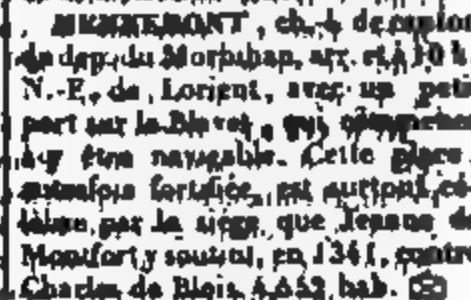 HENNEBONT, ch.-l. de canton
du dép. du Morbihan, arr. et à 10 k.
N.-E. de Lorient, avec un petit
port sur le Blavet, qui commence
à y être navigable. Cette place,
autrefois fortifiée, est surtout cé-
lèbre par le siége que Jeanne de
Montfort y soutint, en 1341, contre
Charles de Blois. 4,652 hab.